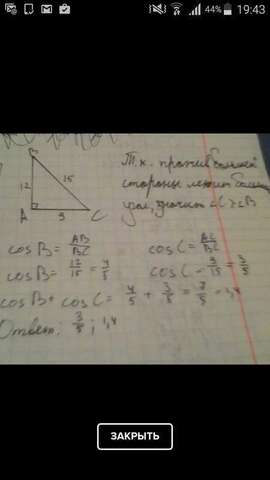 44% 19:43
B
12
15
A
9
C
Т.к. против большей
стороны лежит больш
угол, значит ∠C > ∠B
cos B = AB/BC
cos C = AC/BC
cos B = 12/15 = 4/5
cos C = 9/15 = 3/5
cos B + cos C = 4/5 + 3/5 = 7/5 = 1,4
Ответ: 3/5; 1,4
ЗАКРЫТЬ